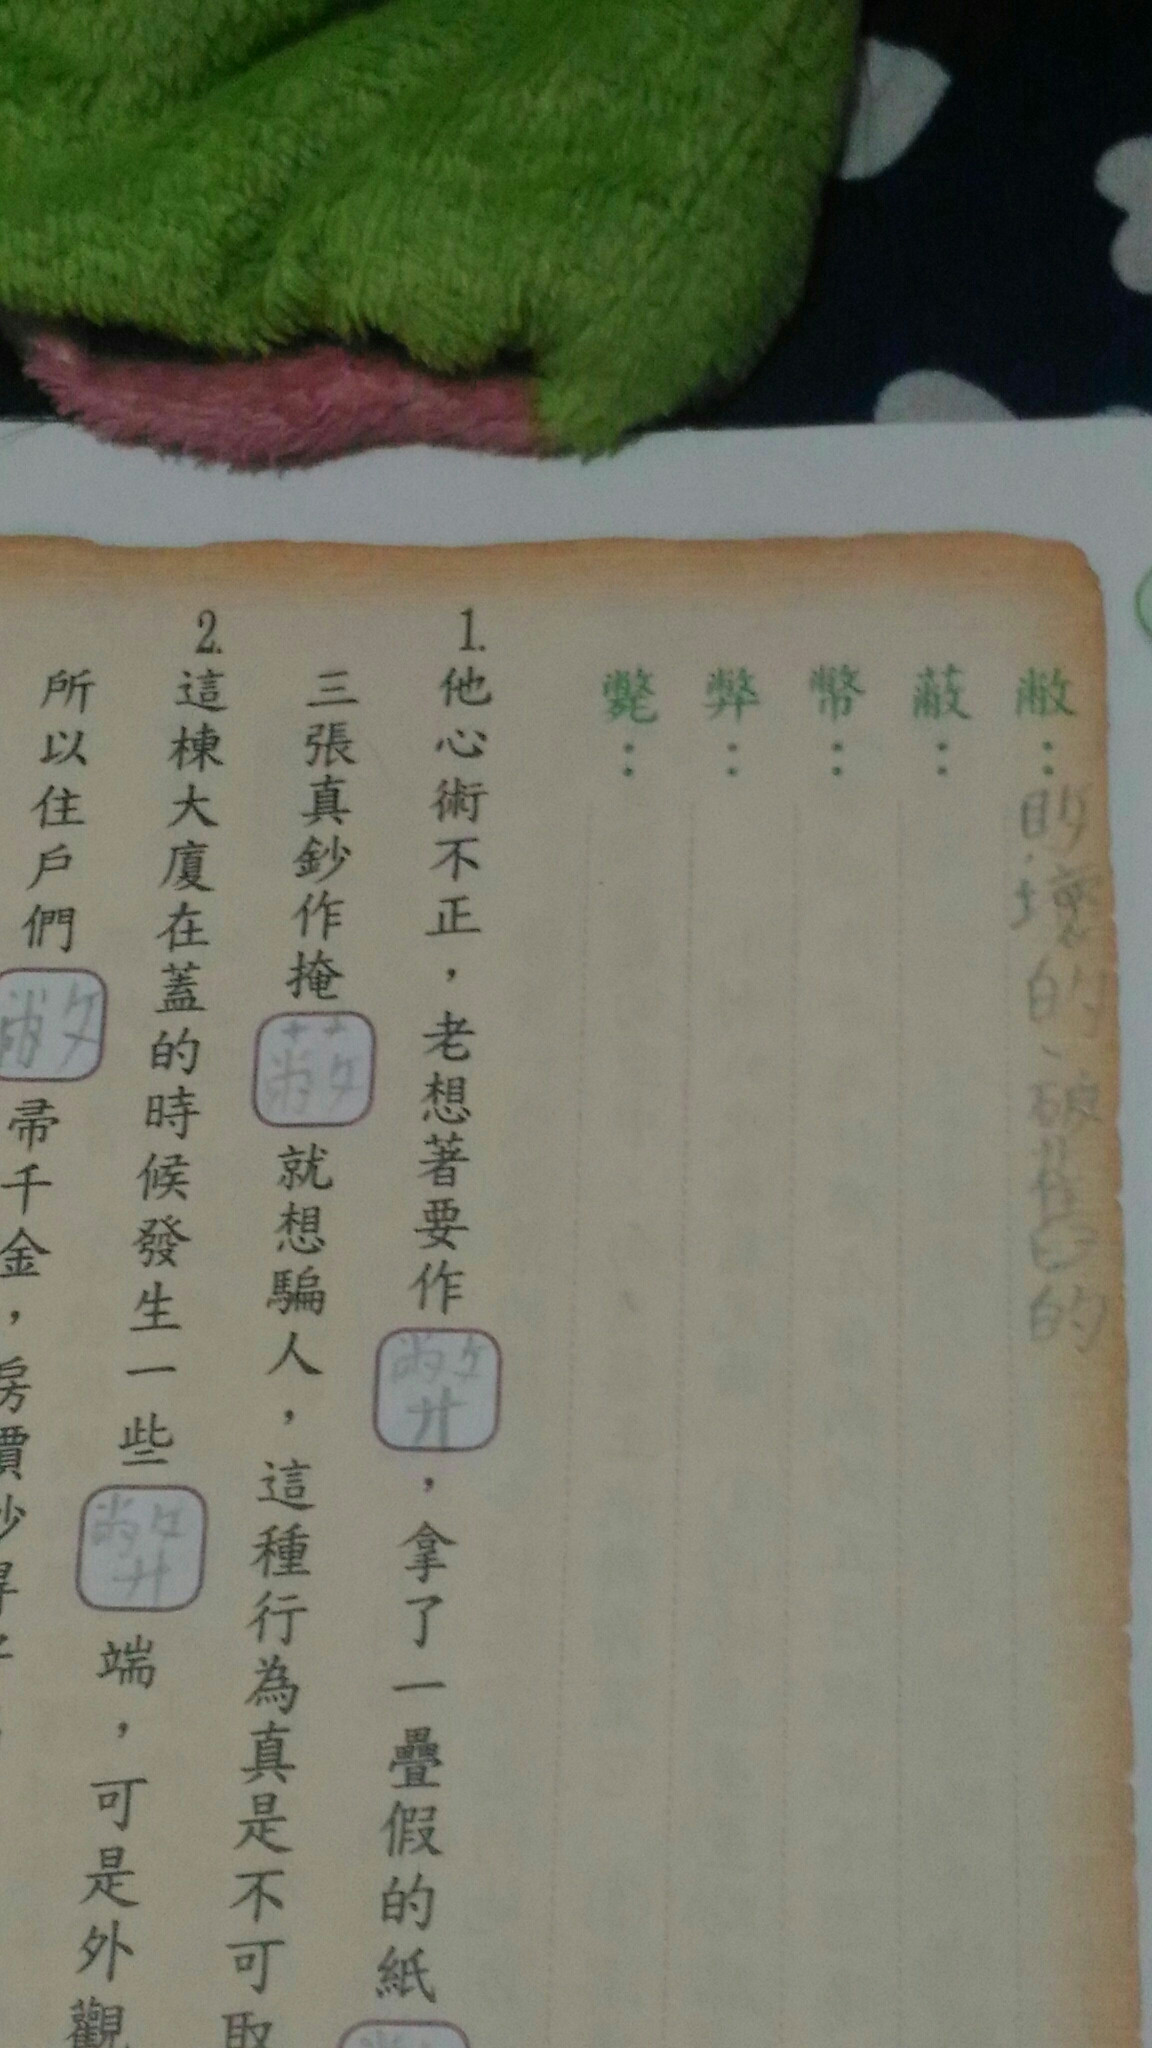 敝：的、壞的、破舊的
蔽：
幣：
弊：
斃：
1.他心術不正，老想著要作弊，拿了一疊假的紙
三張真鈔作掩蔽就想騙人，這種行為真是不可取
2.這棟大廈在蓋的時候發生一些弊端，可是外觀
所以住戶們敝帚千金，房價